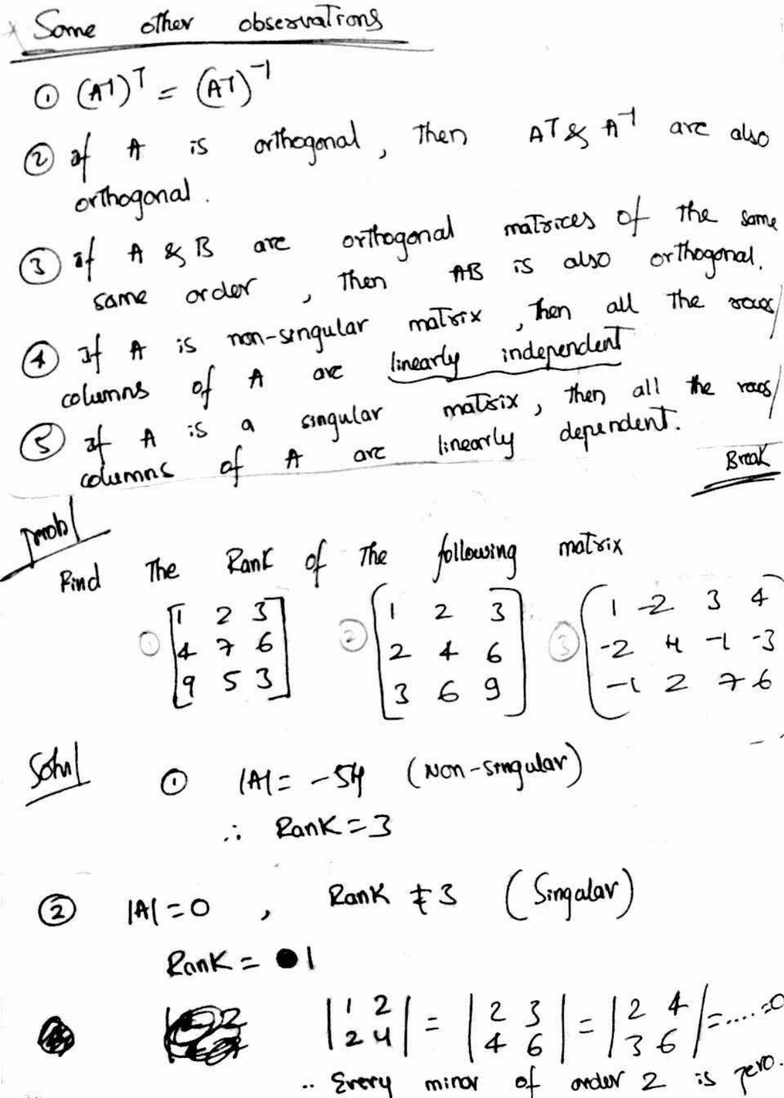 Some other observations
① (A⁻¹)ᵀ = (Aᵀ)⁻¹
② If A is orthogonal, Then Aᵀ & A⁻¹ are also
orthogonal.
③ if A & B are orthogonal matrices of the same
same order, Then AB is also orthogonal.
④ If A is non-singular matrix, Then all The rows/
columns of A are linearly independent
⑤ If A is a singular matrix, Then all the rows/
columns of A are linearly dependent.
Break
Prob/
Find The Rank of The following matrix
① [1 2 3 ② [1 2 3 ③ (1 -2 3 4
4 7 6 2 4 6 -2 4 -1 -3
9 5 3] 3 6 9] -1 2 7 6
Soln/ ① |A| = -54 (Non-singular)
∴ Rank = 3
② |A| = 0, Rank ≠ 3 (Singular)
Rank = 1
|1 2| = |2 3| = |2 4| = ....=0
|2 4| |4 6| |3 6|
∴ Every minor of order 2 is zero.